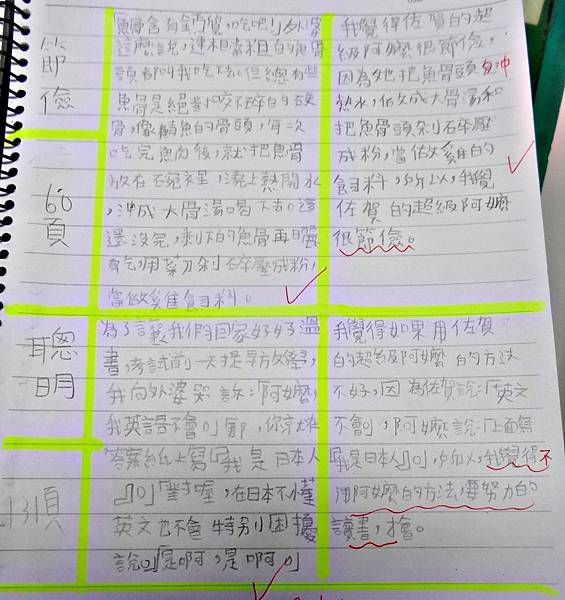 節儉
60頁
魚骨含有鈣質，吃吧！」外婆
這麼說，連相當粗的魚骨
頭都叫我吃下去。但總有些
魚骨是絕對咬不碎的硬
骨，像鯖魚的骨頭，每次
吃完魚肉後，就把魚骨
放在碗裡，澆上熱開水
，沖成大骨湯喝下去。這
還沒完，剩下的魚骨再曬
乾，用菜刀剁碎壓成粉，
當做雞飼料。
我覺得佐賀的超
級阿嬤很節儉，
因為她把魚骨頭沖
熱水，做成大骨湯和
把魚骨頭剁碎壓
成粉，當做雞的
飼料，所以，我覺
佐賀的超級阿嬤
很節儉。
聰明
131頁
為了讓我們回家好好溫
書，考試前一天提早放學，
我向外婆哭訴：「阿嬤，
我英語不會。」「那，你就在
答案紙上寫『我是日本人
』。」「對喔，在日本不懂
英文也不會特別困擾
說。」「是啊，是啊。」
我覺得如果用佐賀
的超級阿嬤的方法
不好，因為佐賀說：「英文
不會」，阿嬤說：「上面寫
『我是日本人』。」，所以，我覺得不
用阿嬤的方法，要努力的
讀書，才會。